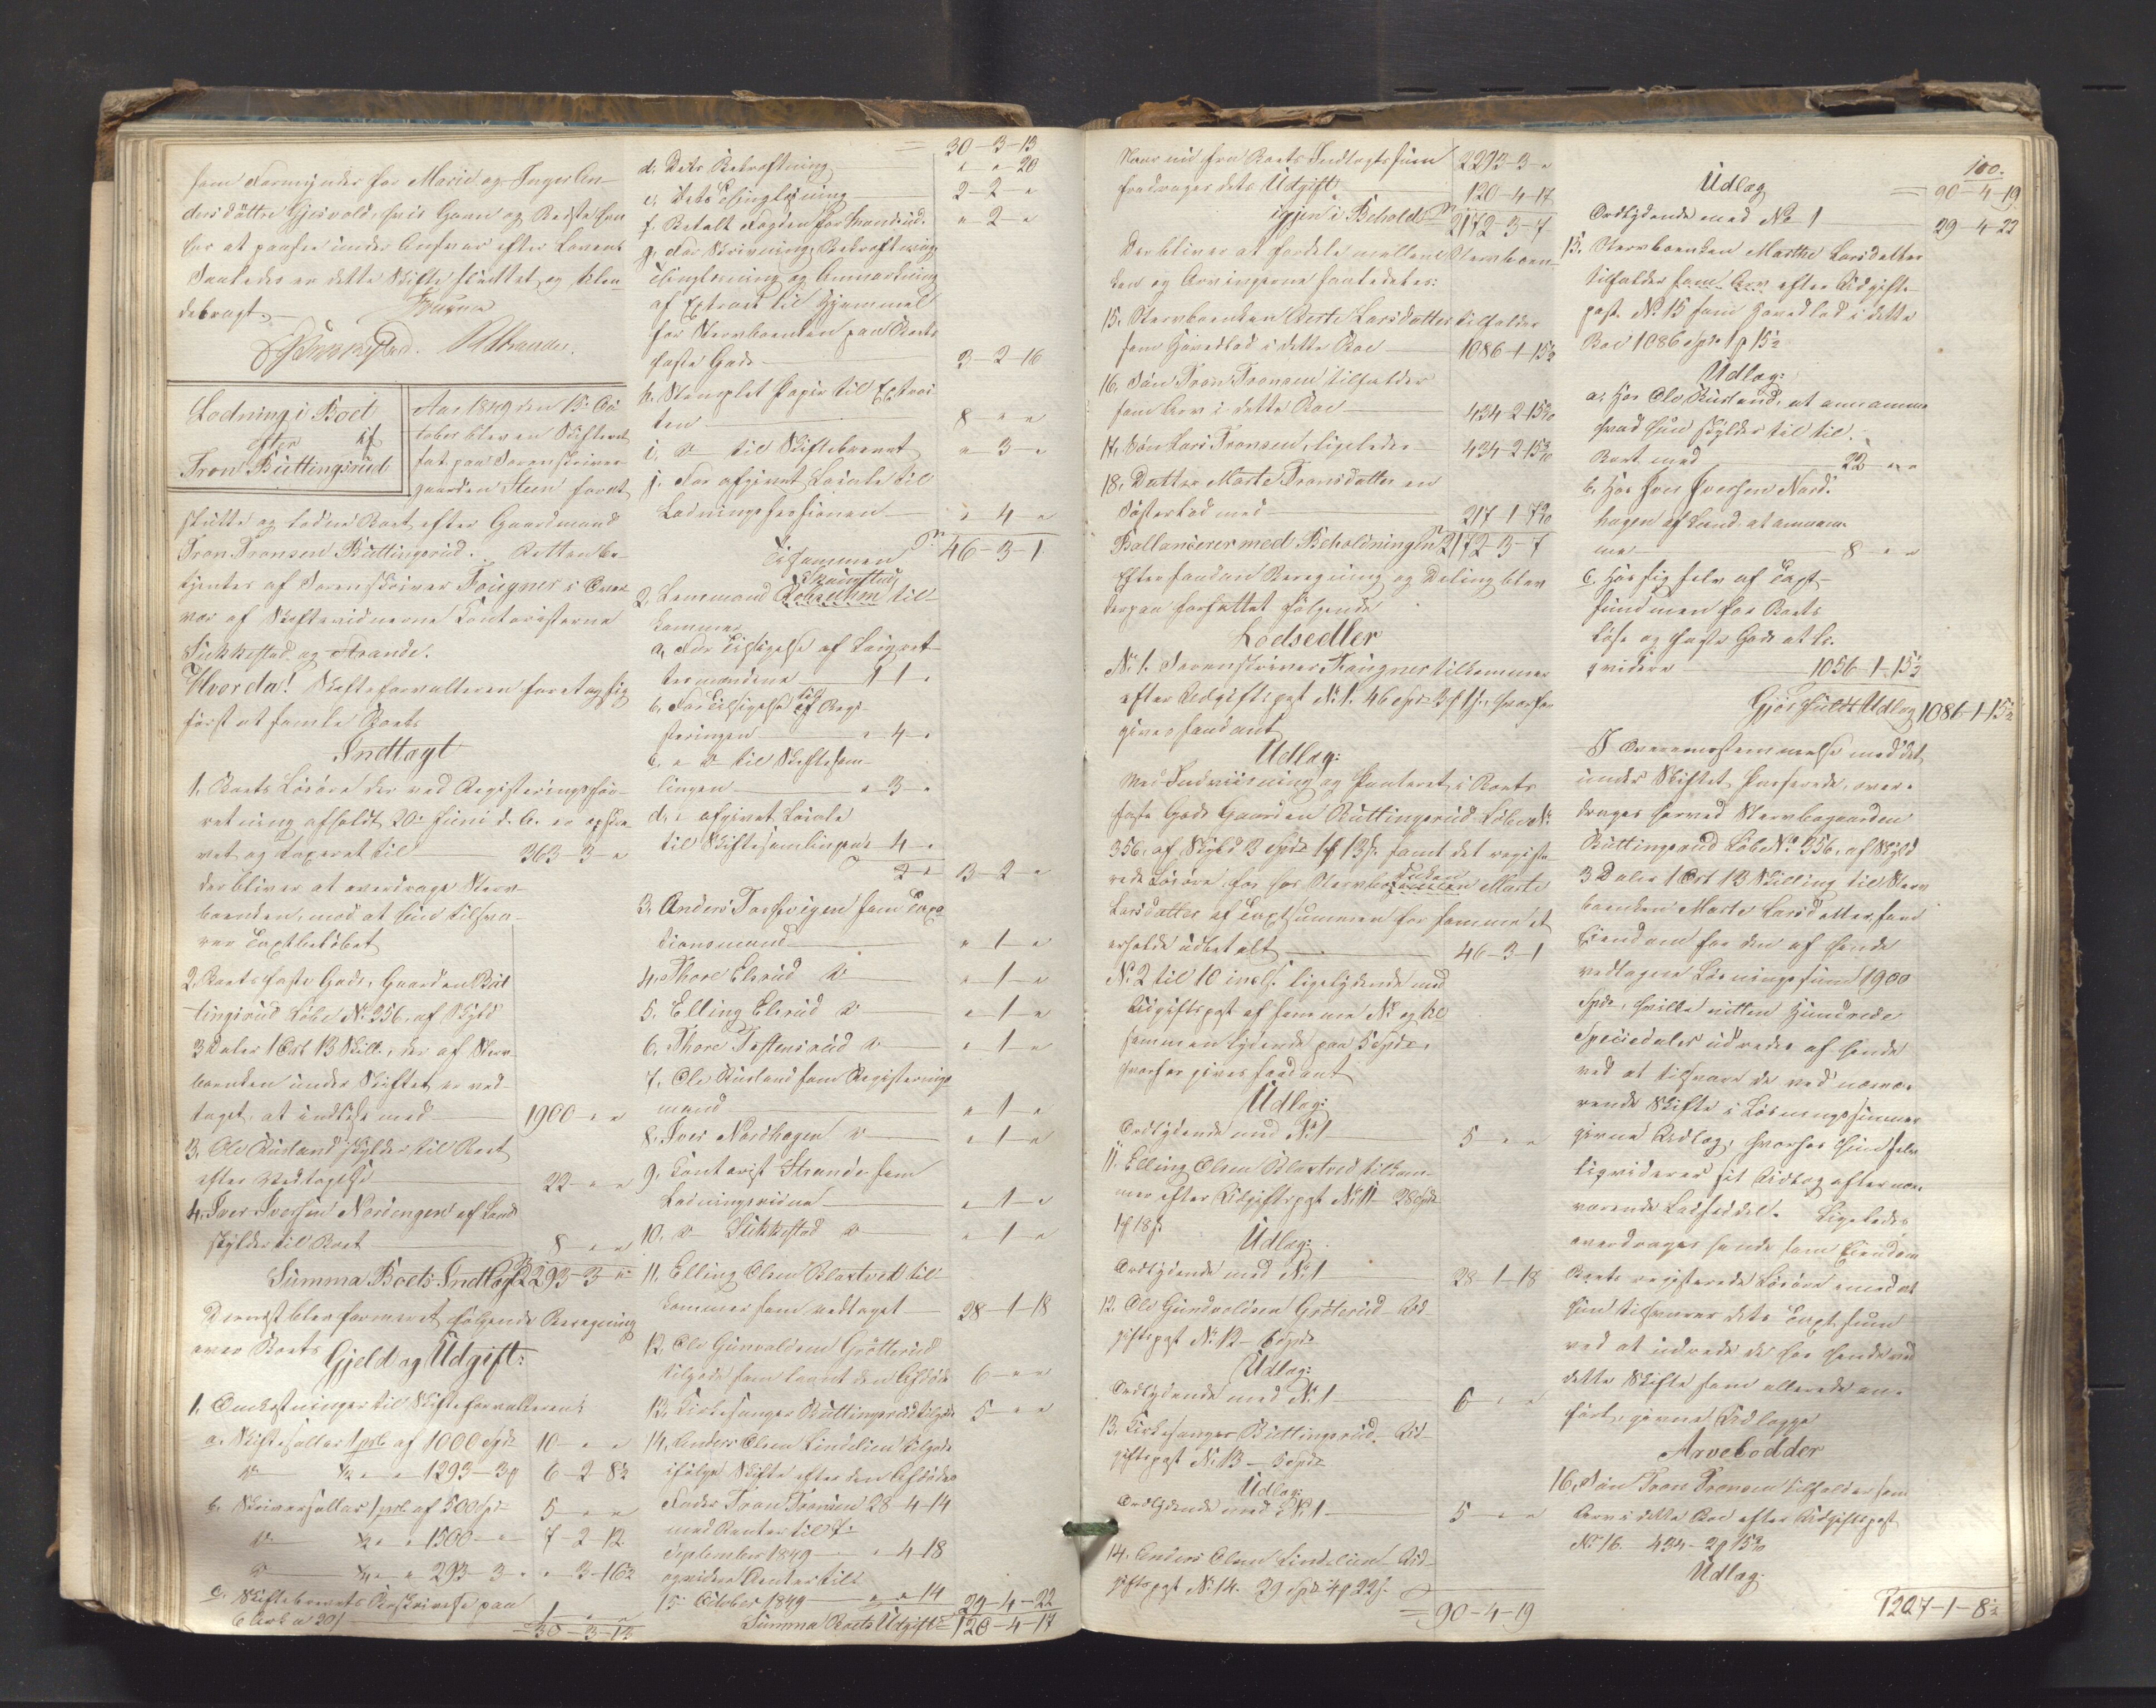 som Formynder for Marie og Inger An-
dersdöttre Gjesvold, hvis Gavn og Bedste han
har at paasee under Ansvar efter Loven.
Saaledes er dette Skifte sluttet og tilen-
debragt.
Lodning i Boet
efter
Tron Büttingsrüd
Aar 1849 den 15 Oc-
tober blev en Skifteret
sat paa Sorenskriver-
gaarden Steen for at
slutte og lodne Boet efter Gaardmand
Tron Tronsen Büttingsrüd. Retten be-
tjentes af Sorenskriver Fougner i Over-
vær af Skiftevidnerne Contoristerne
Sükkestad og Strande.
Hvorda! Skifteforvalteren foretog sig
først at samle Boets
Indtægt
1, Boets Lösöre der ved Registeringsfor-
retning afholdt 20 Juni d. A. er opskre-
vet og taxeret til 363-3-"
der bliver at overdrage Sterv-
boenken, mod at hun tilsva-
rer Taxtbelöbet
2, Boets faste Gods, Gaarden Büt-
tingsrüd Löbe No 356, af Skyld
3 Daler 1 Ort 13 Skill., der af Sterv-
boenken under Skiftet er ved-
taget at indlöse med 1900 " "
3, Ole Rüstand skylder til Boet
efter Vedtagelse 22 " "
4, Iver Iversen Nordengen af Land
skylder til Boet 8 " "
Summa Boets Indtægt 2293-3-"
Dernæst blev formeret følgende Beregning
over Boets Gjeld og Udgift:
1, Omkostninger til Skifteforvalteren:
a. Skiftesallar 1 prC af 1000 Spd 10 " "
½ " " 1293-3 6-2-8½
b. Skriversallar 1 prC af 500 Sp 5 " "
½ " " 1500 " 7-2-12
¼ " " 293-3 " " 3-16½
c. Skiftebrevets Beskrivelse paa
6 Ark a 20 1 " "
30-3-13
30-3-13
d. Dets Bekræftning " " 20
e, Dets Thinglæsning 2-2-"
f. Betalt Fogden for " 2 "
g. For Skrivning, Bekræftning,
Thinglæsning og Anmærkning
af Extract til Hjemmel
for Stervboenken paa Boets
faste Gods 3-2-16
h. Stemplet Papir til Extrac-
ten 8 " "
i, " til Skiftebrevet " 3 "
j. For afgivet Locale til
Lodningssessionen " 4 "
Tilsammen 46-3-1
2. Lensmand til-
kommer
a, For Tilsigelse af Laugret-
temændene 1 1 "
b. For Tilsigelse til Regi-
steringen " 4 "
c. " " til Skiftesam-
lingen " 3 "
d. " afgivet Locale
til Skiftesamlingen " 4 "
3-2-"
3. Anders som Taxa-
tionsmand " 1 "
4, Thore Elsrüd " 1 "
5, Elling Elsrüd " 1 "
6, Thore " 1 "
7. Ole Rüstand som Registerings-
mand " 1 "
8, Iver Nordhagen " 1 "
9, Contorist Strande som
Lodningsvidne " 1 "
10. Sükkestad " 1 "
11, Elling Olsen Blaxtved til-
kommer som vedtaget 28-1-18
12, Ole Gunvaldsen Gröterüd
tilgode som laant den Afdöde 6 " "
13, Kirkesanger Büttingsrüd tilgode 5 " "
14, Anders Olsen Lindelien tilgode
ifölge Skifte efter den Afdödes
Fader Tron Tronsen 28-4-14
med Renter til
September 1849 " 4-18
og videre Renter til
15 October 1849 " " 14 29-4-22
Summa Boets Udgift 120-4-17
Naar nu fra Boets Indtægts sum 2293-3-"
fradrages dets Udgift 120-4-17
igjen i Behold 2172-3-7
Der bliver at fordele mellem Stervboen-
ken og Arvingerne saaledes:
15. Stervboenken Marte Larsdatter tilfalder
som Hovedlod i dette Boe 1086-1-15½
16. Sön Tron Tronsen tilfalder
som Arv i dette Boe 434-2-15
17, Sön Lars Tronsen, ligeledes 434-2-15
18. Datter Marte Tronsdatter en
Söslerlod med 217-1-7
Ballancerer med Beholdningen 2172-3-7
Efter saadan Beregning og Deling blev
derpaa forfattet følgende
Lodsedler
No 1. Sorenskriver Fougner tilkommer
efter Udgiftspost No 1. 46 Spd 3 1 s, hvorfor
gives saadant
Udlæg:
Med Indviisning og Panteret i Boets
faste Gods Gaarden Büttingsrüd Löbe No
356, af Skyld 3 Spd 1 13 s. samt det registe-
rede Lösöre, for hos Stervboenken Marte
Larsdatter af Taxtsummen for samme at
erholde udbetalt 46-3-1
No 2 til 10 incls. ligelydende med
Udgiftspost af samme No og til-
sammen lydende paa 5 Spd,
hvorfor gives saadant
Udlæg:
Ordlydende med No 1 5 " "
11, Elling Olsen Blaxtved tilkom-
mer efter Udgiftspost No 11 28 Spd
1 18 s.
Udlæg:
Ordlydende med No 1 28-1-18
12. Ole Gundvaldsen Gröterüd Ud-
giftspost No 12 6 Spd
Udlæg:
Ordlydende med No 1 6 " "
13, Kirkesanger Büttingsrüd. Ud-
giftspost No 13 5 Spd
Udlæg:
Ordlydende med No 1 5 " "
14. Anders Olsen Lindelien Ud-
giftspost No 14. 29 Spd 4 22 s.
90-4-19
100.
Udlæg 90-4-19
Ordlydende med No 1 29-4-22
15, Stervboenken Marthe Larsdatter
tilfalder som Arv efter Udgifts-
post No 15 som Hovedlod i dette
Boe 1086 Spd 1 15½
Udlæg:
a, Hos Ole Rüstand, at annamme
hvad han skylder til til
Boet med 22 " "
b, Hos Iver Iversen Nord-
hagen af Land, at annam-
me 8 " "
c, Hos sig selv af Taxt-
summen for Boets
löse og faste Gods at li-
qvidere 1056-1-15½
Gjør fuldt Udlæg 1086-1-15½
I Overensstemmelse med det
under Skiftet Passerede, over-
drages herved Stervbogaarden
Büttingsrüd Löbe No 356, af Skyld
3 Daler 1 Ort 13 Skilling til Sterv-
boenken Marte Larsdatter, som
Eiendom for den af hende
vedtagne Lösningssum 1900
Spd, hvilke nitten Hundrede
Speciedaler udredes af hende
ved at tilsvare de ved nærvæ-
rende Skifte i Lösningssummen
givne Udlæg, hvorfor hun selv
liqviderer sit Udlæg efter nær-
værende Lodseddel. Ligeledes
overdrages hende som Eiendom
Boets registerede Lösöre imod at
hun tilsvarer dets Taxtsum
ved at udrede de for hende ved
dette Skifte som allerede an-
fört, givne Udlægge
Arvelodder
16, Sön Tron Tronsen tilfalder som
Arv i dette Boe efter Udgiftspost
No 16. 434-2 15
Udlæg:
1207-1-8½